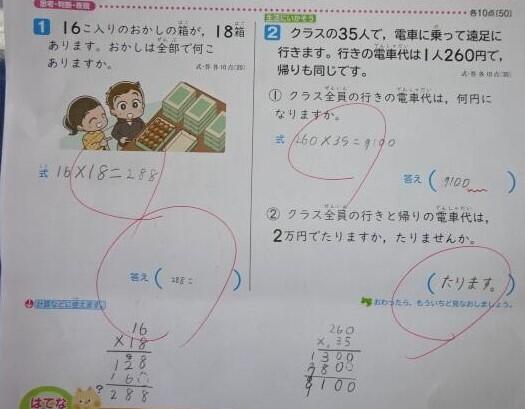 思考・判断・表現
1 16こ入りのおかしの箱が，18箱
あります。おかしは全部で何こ
ありますか。
式・答 各10点(20)
式 16×18=288
答え ( 288こ )
計算などに使えます。
16
×18
128
160
288
はてな
生活にいかそう
各10点(50)
2 クラスの35人で，電車に乗って遠足に
行きます。行きの電車代は1人260円で，
帰りも同じです。
式・答 各10点(30)
① クラス全員の行きの電車代は，何円に
なりますか。
式 260×35=9100
答え ( 9100 )
② クラス全員の行きと帰りの電車代は，
2万円でたりますか，たりませんか。
( たります。 )
おわったら、もういちど見なおしましょう。
260
×35
1300
7800
9100